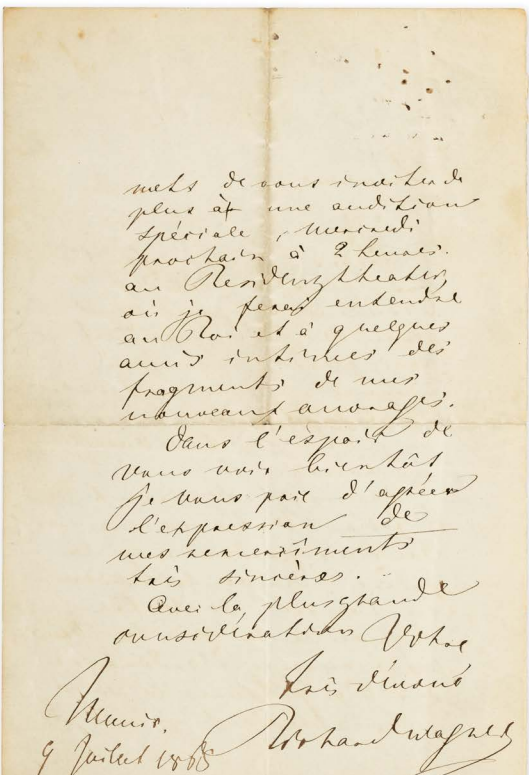 mets de vous inviter de
plus à une audition
spéciale, mercredi
prochain à 2 heures.
au Residenztheater,
où je ferai entendre
au Roi et à quelques
amis intimes des
fragments de mes
nouveaux ouvrages.
Dans l'espoir de
vous voir bientôt
je vous prie d'agréer
l'expression de
mes remerciments
très sincères.
Avec la plus grande
considération Votre
très dévoué
Richard Wagner
Munic.
9 Juillet